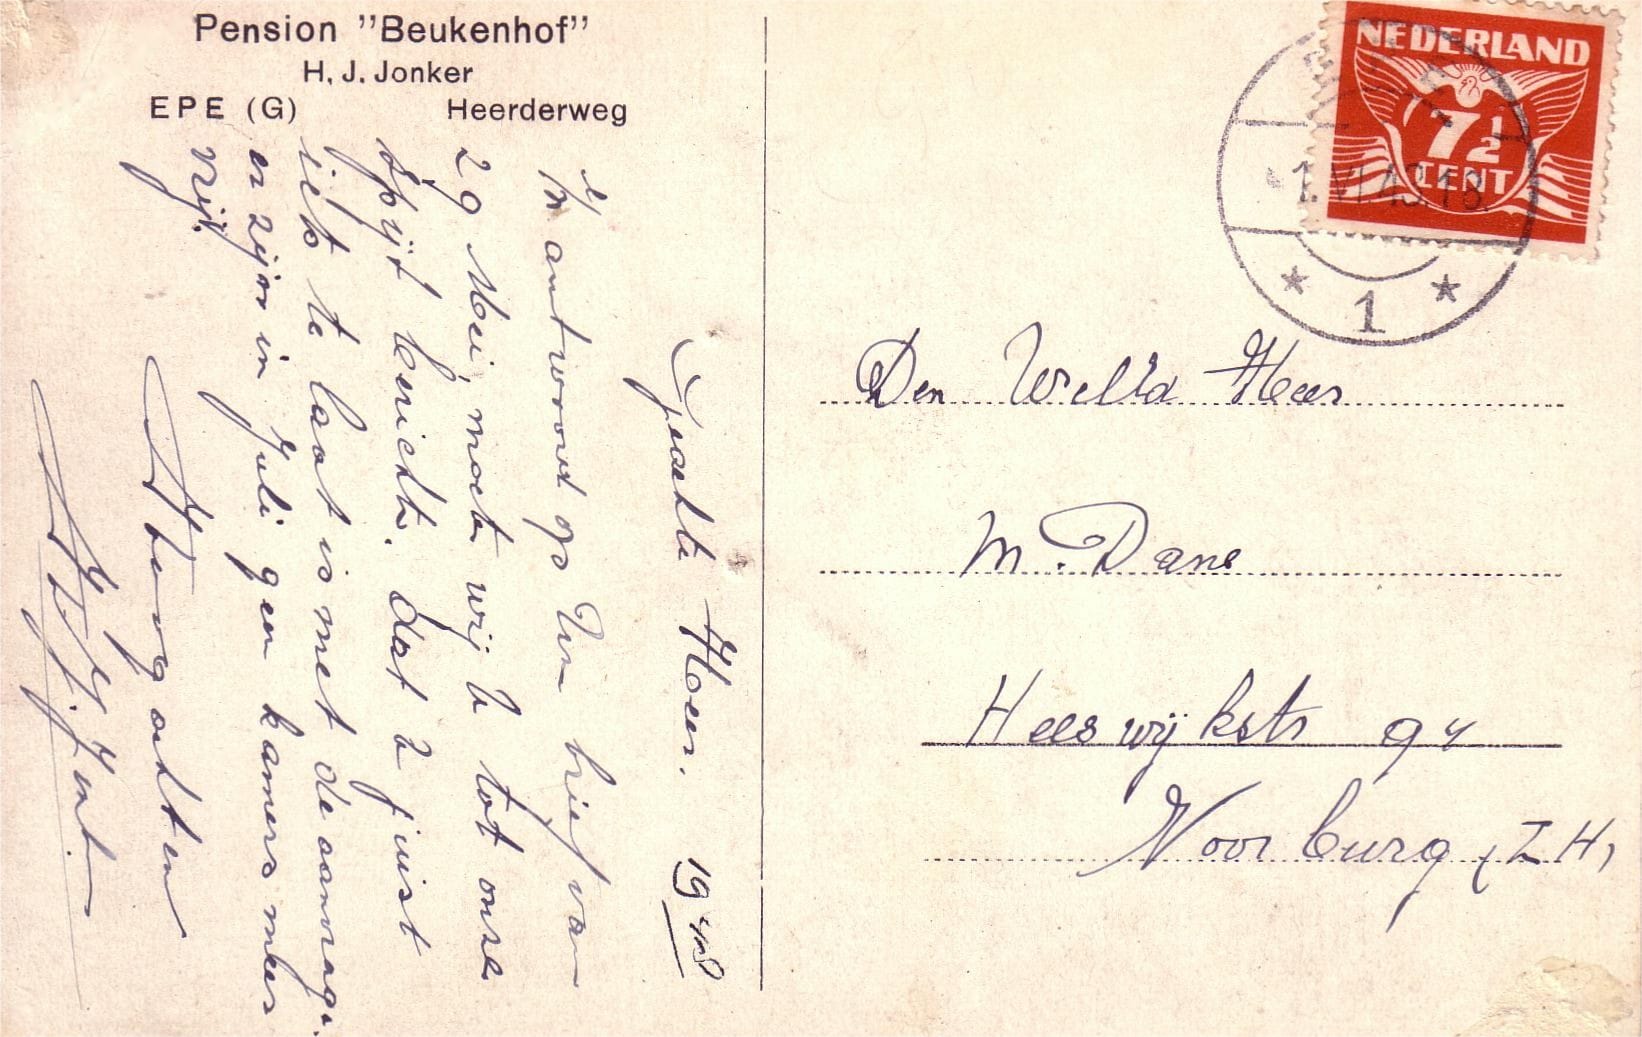 Pension "Beukenhof"
H. J. Jonker
EPE (G) Heerderweg
Geachte Heer. 1948
In antwoord op Uw brief van
29 Mei, moeten wij U tot onze
Spijt berichten. dat U juist
iets te laat is met de aanvrage.
er zijn in Juli geen kamers meer
vrij.
Hoogachten
NEDERLAND
7½
CENT
1. VI. 48. 18.
1
Den Heer
M. Dane
Heeswijkstr 94
Voorburg (Z H)